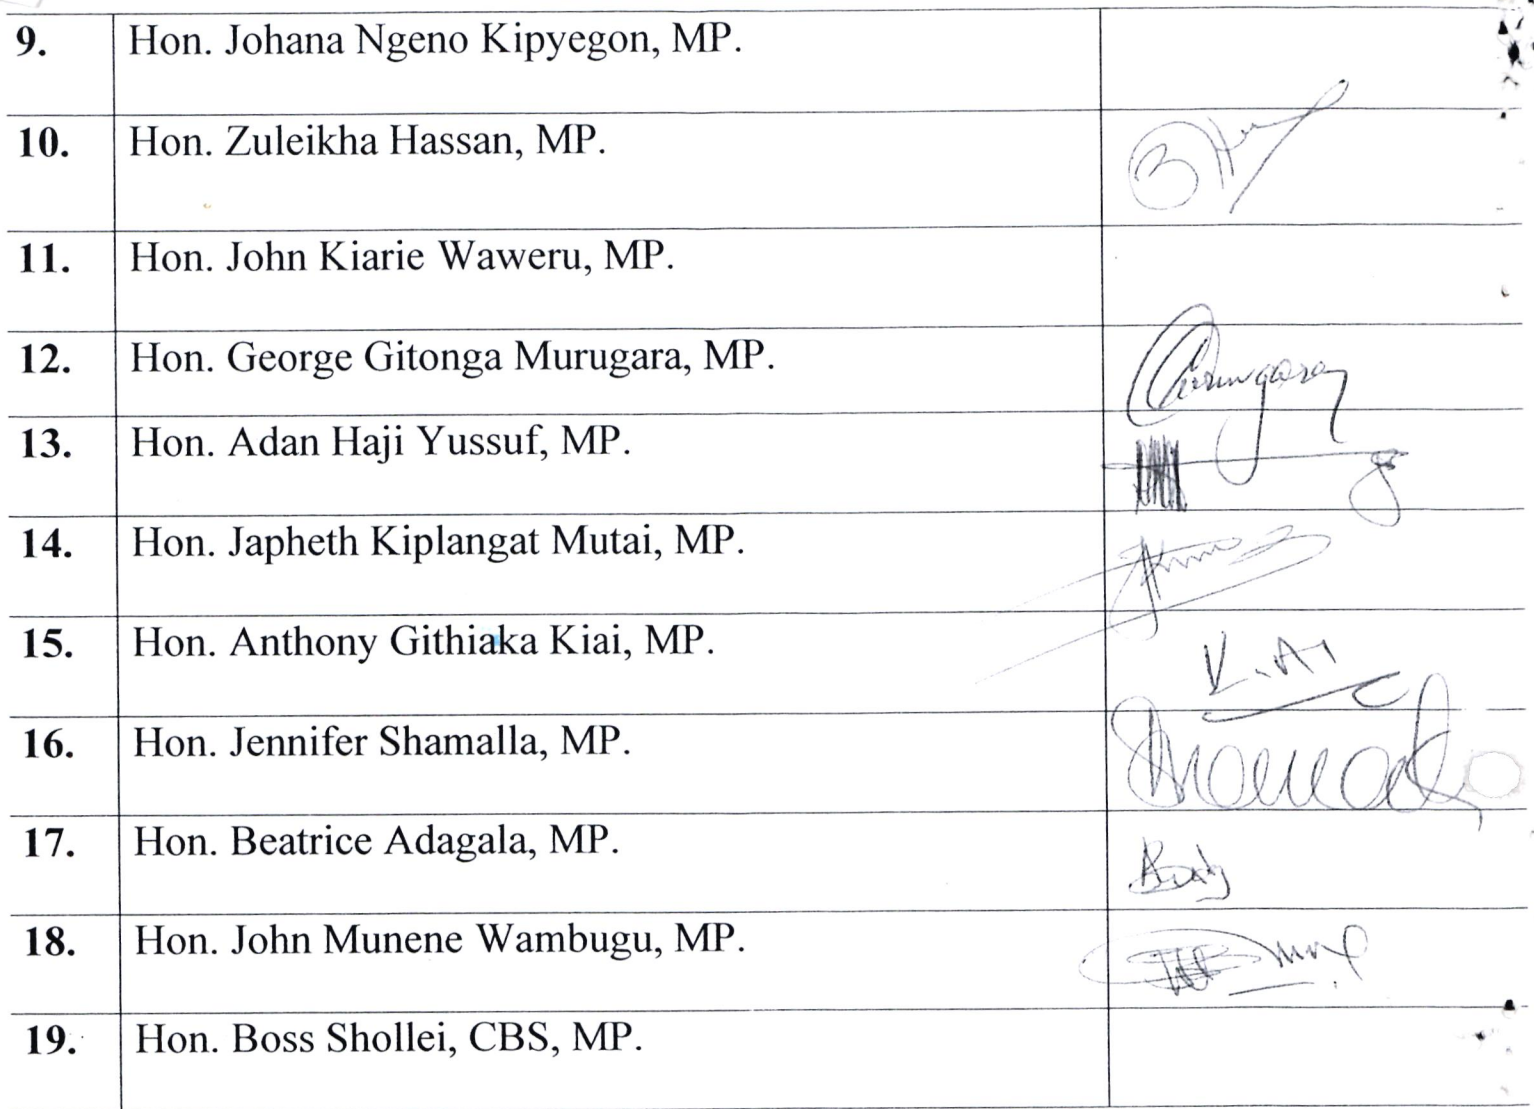 9. Hon. Johana Ngeno Kipyegon, MP.
10. Hon. Zuleikha Hassan, MP.
11. Hon. John Kiarie Waweru, MP.
12. Hon. George Gitonga Murugara, MP.
13. Hon. Adan Haji Yussuf, MP.
14. Hon. Japheth Kiplangat Mutai, MP.
15. Hon. Anthony Githiaka Kiai, MP.
16. Hon. Jennifer Shamalla, MP.
17. Hon. Beatrice Adagala, MP.
18. Hon. John Munene Wambugu, MP.
19. Hon. Boss Shollei, CBS, MP.